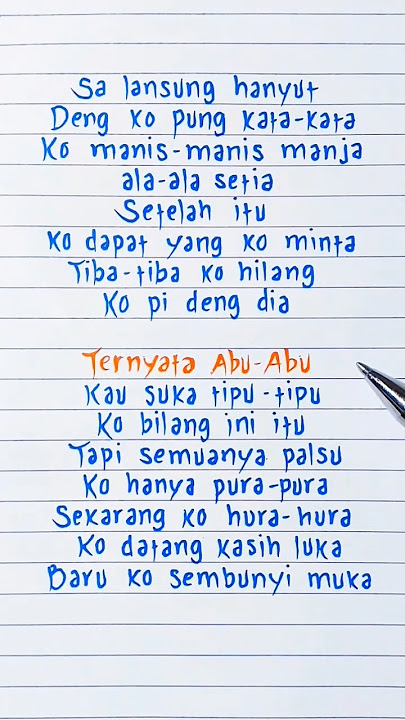 Sa lansung hanyut
Deng ko pung kata-kata
Ko manis-manis manja
ala-ala setia
Setelah itu
Ko dapat yang ko minta
Tiba-tiba ko hilang
Ko pi deng dia
Ternyata Abu-Abu
Kau suka tipu-tipu
Ko bilang ini itu
Tapi semuanya palsu
Ko hanya pura-pura
Sekarang ko hura-hura
Ko datang kasih luka
Baru ko sembunyi muka